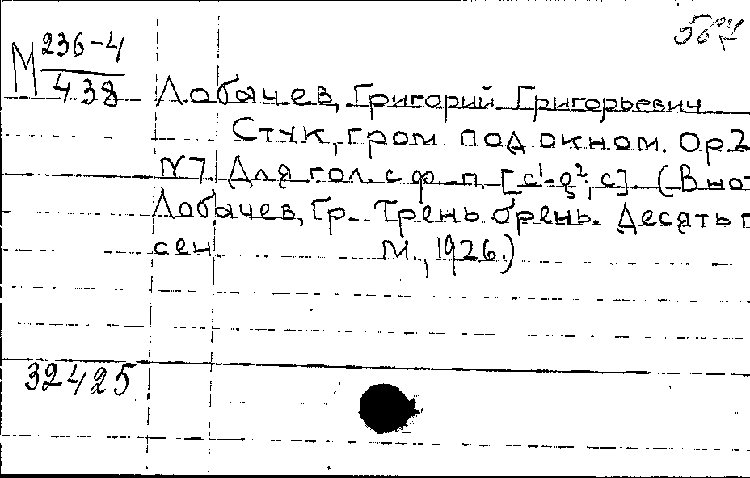 М 236-4
438
Лобачев, Григорий Григорьевич
Стук, гром под окном. Ор.2
№7. Для гол. с ф-п. [c¹-g²; c]. (В нот
Лобачев, Гр. Трень брень. Десять п
сен М., 1926.)
32425